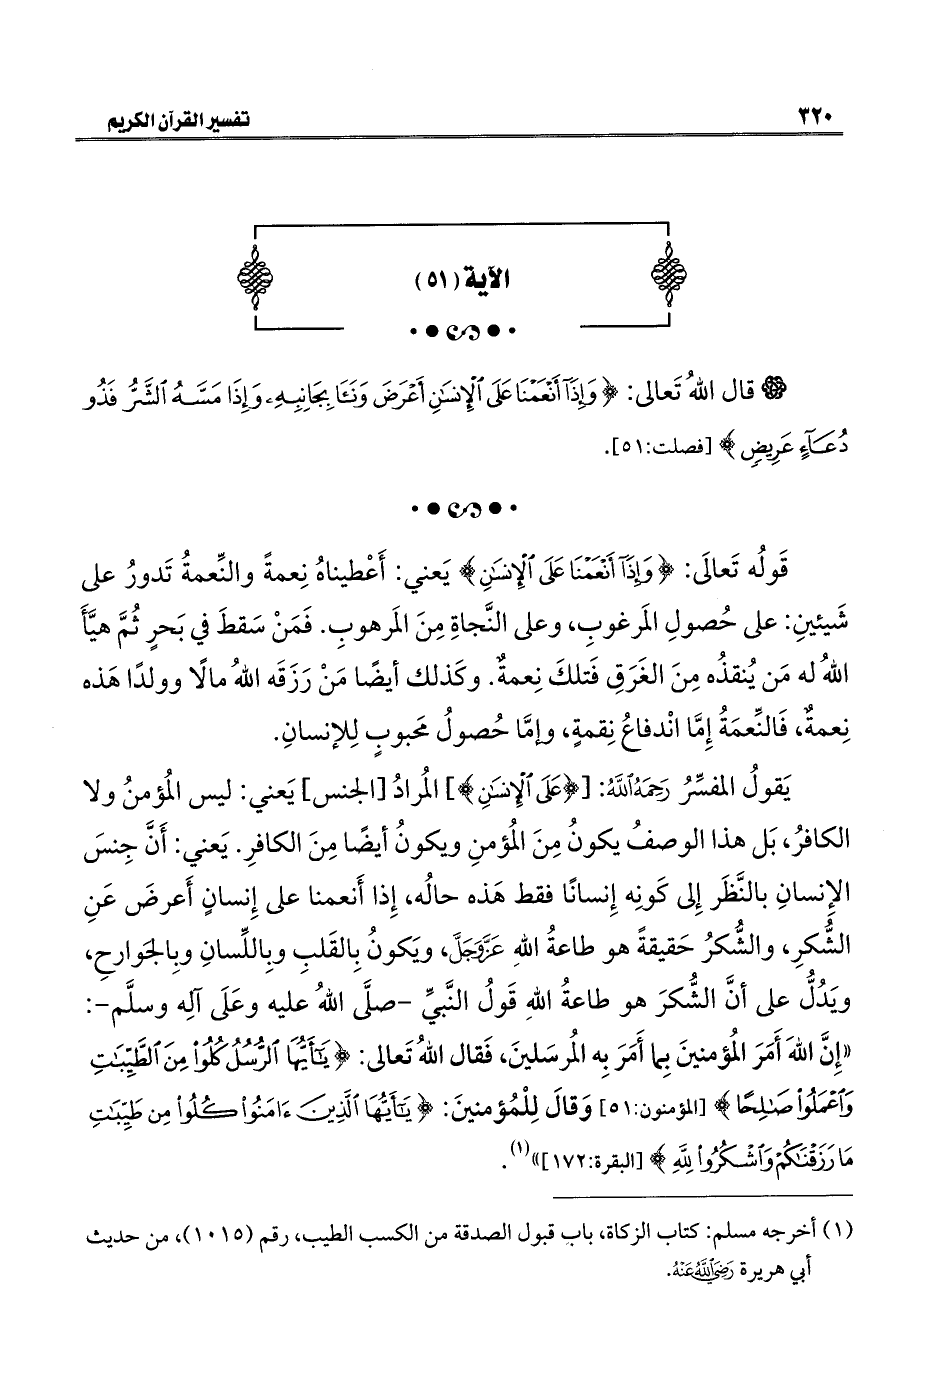 ٣٢٠
تفسير القرآن الكريم
الآية (٥١)
قال اللهُ تَعالى: ﴿وَإِذَآ أَنْعَمْنَا عَلَى ٱلْإِنسَٰنِ أَعْرَضَ وَنَـَٔا بِجَانِبِهِۦ وَإِذَا مَسَّهُ ٱلشَّرُّ فَذُو
دُعَآءٍ عَرِيضٍ﴾ [فصلت:٥١].
قَولُه تَعالَى: ﴿وَإِذَآ أَنْعَمْنَا عَلَى ٱلْإِنسَٰنِ﴾ يَعني: أَعْطيناهُ نِعمةً والنِّعمةُ تَدورُ على
شَيئينِ: على حُصولِ المَرغوبِ، وعلى النَّجاةِ مِنَ المَرهوبِ. فَمَنْ سَقطَ في بَحرٍ ثُمَّ هيَّأَ
اللهُ له مَن يُنقذُه مِنَ الغَرَقِ فَتلكَ نِعمةٌ. وكَذلك أيضًا مَنْ رَزَقَه اللهُ مالًا وولدًا هَذه
نِعمةٌ، فَالنِّعمَةُ إمَّا انْدفاعُ نِقمةٍ، وإمَّا حُصولُ مَحبوبٍ لِلإنسانِ.
يَقولُ المفسِّرُ رَحِمَهُ ٱللَّهُ: [﴿عَلَى ٱلْإِنسَٰنِ﴾] المُرادُ [الجنس] يَعني: ليس المُؤمنُ ولا
الكافرُ، بَل هذا الوصفُ يكونُ مِنَ المُؤمنِ ويكونُ أيضًا مِنَ الكافرِ. يَعني: أَنَّ جِنسَ
الإنسانِ بالنَّظَرِ إلى كَونِه إنسانًا فقط هَذه حالُه، إذا أنعمنا على إنسانٍ أَعرضَ عَنِ
الشُّكرِ، والشُّكرُ حَقيقةً هو طاعةُ اللهِ عَزَّوَجَلَّ، ويَكونُ بِالقَلبِ وبِاللِّسانِ وبِالجَوارحِ،
ويَدُلُّ على أنَّ الشُّكرَ هو طاعةُ اللهِ قَولُ النَّبيِّ -صلَّى اللهُ عليه وعَلَى آلِه وسلَّم-:
«إنَّ اللهَ أَمَرَ المُؤمنينَ بِما أَمَرَ بِه المُرسَلينَ، فَقال اللهُ تَعالى: ﴿يَٰٓأَيُّهَا ٱلرُّسُلُ كُلُوا۟ مِنَ ٱلطَّيِّبَٰتِ
وَٱعْمَلُوا۟ صَٰلِحًا﴾ [المؤمنون:٥١] وَقالَ لِلْمُؤمنينَ: ﴿يَٰٓأَيُّهَا ٱلَّذِينَ ءَامَنُوا۟ كُلُوا۟ مِن طَيِّبَٰتِ
مَا رَزَقْنَٰكُمْ وَٱشْكُرُوا۟ لِلَّهِ﴾ [البقرة:١٧٢]»(١).
(١) أخرجه مسلم: كتاب الزكاة، باب قبول الصدقة من الكسب الطيب، رقم (١٠١٥)، من حديث
أبي هريرة رَضِيَ ٱللَّهُ عَنْهُ.